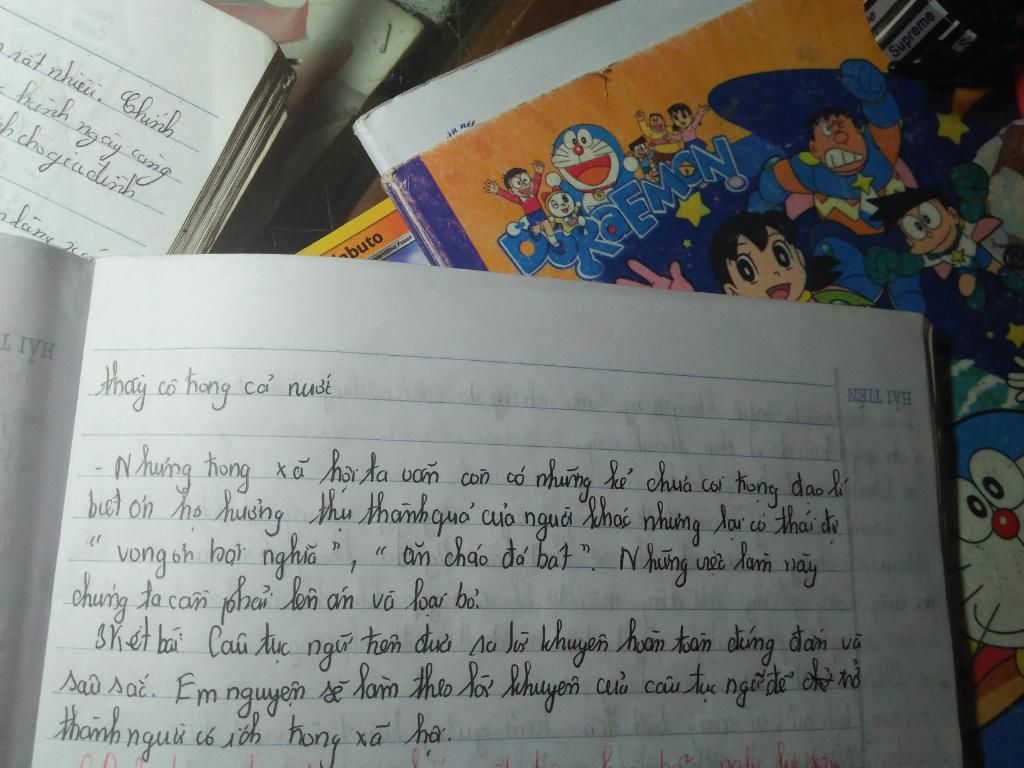 rất nhiều. Chính
hành ngày càng
cho gia đình
Supreme
DORAEMON
Kabuto
HẢI TIẾN
thầy cô trong cả nước
- Nhưng trong xã hội ta vẫn còn có những kẻ chưa coi trọng đạo lí
biết ơn họ hưởng thụ thành quả của người khác nhưng lại có thái độ
"vong ơn bội nghĩa", "ăn cháo đá bát". Những việc làm này
chúng ta cần phải lên án và loại bỏ.
3Kết bài Câu tục ngữ trên đưa ra lời khuyên hoàn toàn đúng đắn và
sâu sắc. Em nguyện sẽ làm theo lời khuyên của câu tục ngữ để trở
thành người có ích trong xã hội.